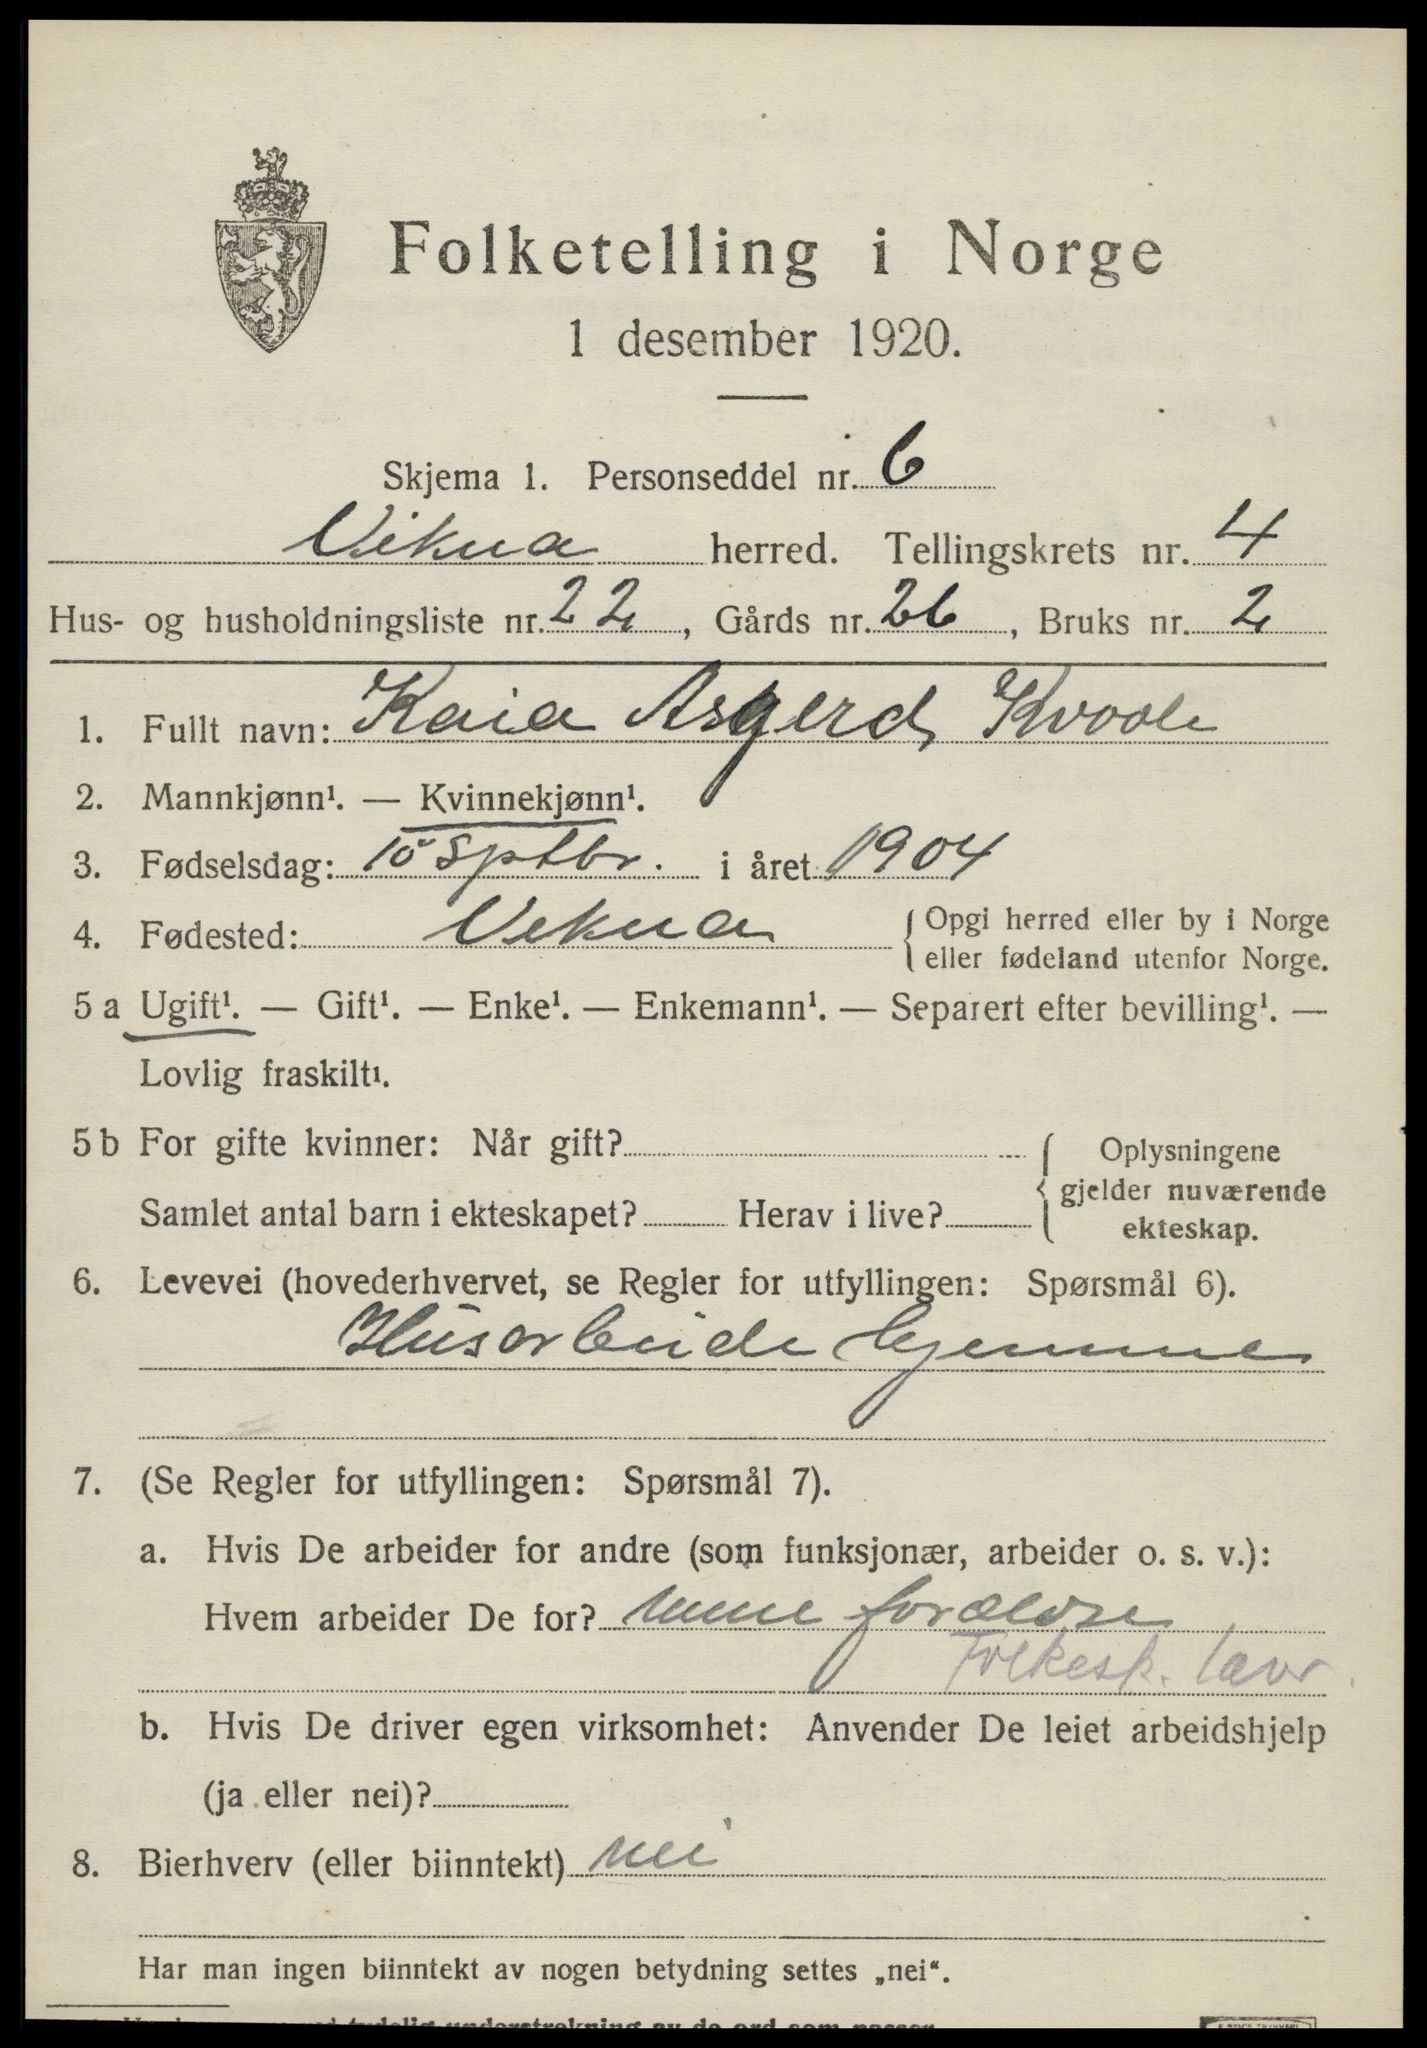 Folketelling i Norge
1 desember 1920.
Skjema 1. Personseddel nr. 6
Vikna herred. Tellingskrets nr. 4
Hus- og husholdningsliste nr. 22, Gårds nr. 26, Bruks nr. 2
1. Fullt navn: Kaia Asgerd Kvovle
2. Mannkjønn¹. — Kvinnekjønn¹.
3. Fødselsdag: 10 Sptbr. i året 1904
4. Fødested: Vikna { Opgi herred eller by i Norge
eller fødeland utenfor Norge.
5 a Ugift¹. — Gift¹. — Enke¹. — Enkemann¹. — Separert efter bevilling¹. —
Lovlig fraskilt¹.
5 b For gifte kvinner: Når gift? { Oplysningene
gjelder nuværende
Samlet antal barn i ekteskapet? Herav i live?
ekteskap.
6. Levevei (hovederhvervet, se Regler for utfyllingen: Spørsmål 6).
Husarbeide hjemme
7. (Se Regler for utfyllingen: Spørsmål 7).
a. Hvis De arbeider for andre (som funksjonær, arbeider o. s. v.):
Hvem arbeider De for? mine forældre
Folkesk. lær.
b. Hvis De driver egen virksomhet: Anvender De leiet arbeidshjelp
(ja eller nei)?
8. Bierhverv (eller biinntekt) nei
Har man ingen biinntekt av nogen betydning settes „nei“.
tydelig understrekning av de ord som passer